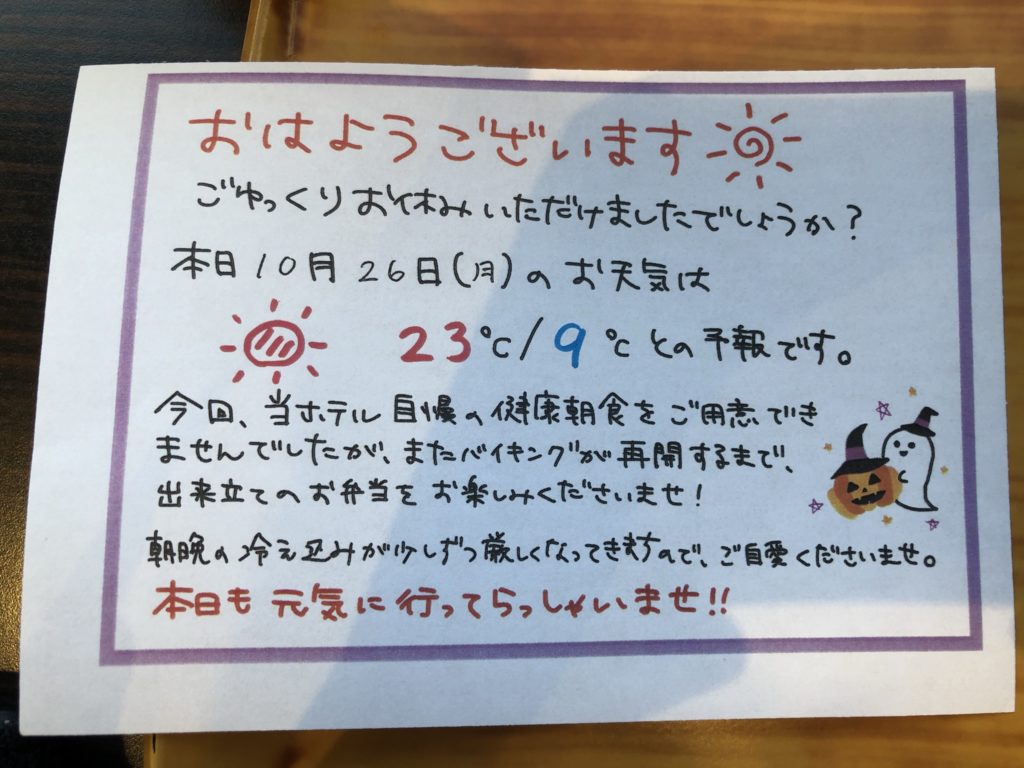 おはようございます
ごゆっくりお休みいただけましたでしょうか?
本日10月26日(月)のお天気は
23℃/9℃との予報です。
今回、当ホテル自慢の健康朝食をご用意でき
ませんでしたが、またバイキングが再開するまで、
出来立てのお弁当をお楽しみくださいませ!
朝晩の冷え込みが少しずつ厳しくなってきますので、ご自愛くださいませ。
本日も元気に行ってらっしゃいませ!!